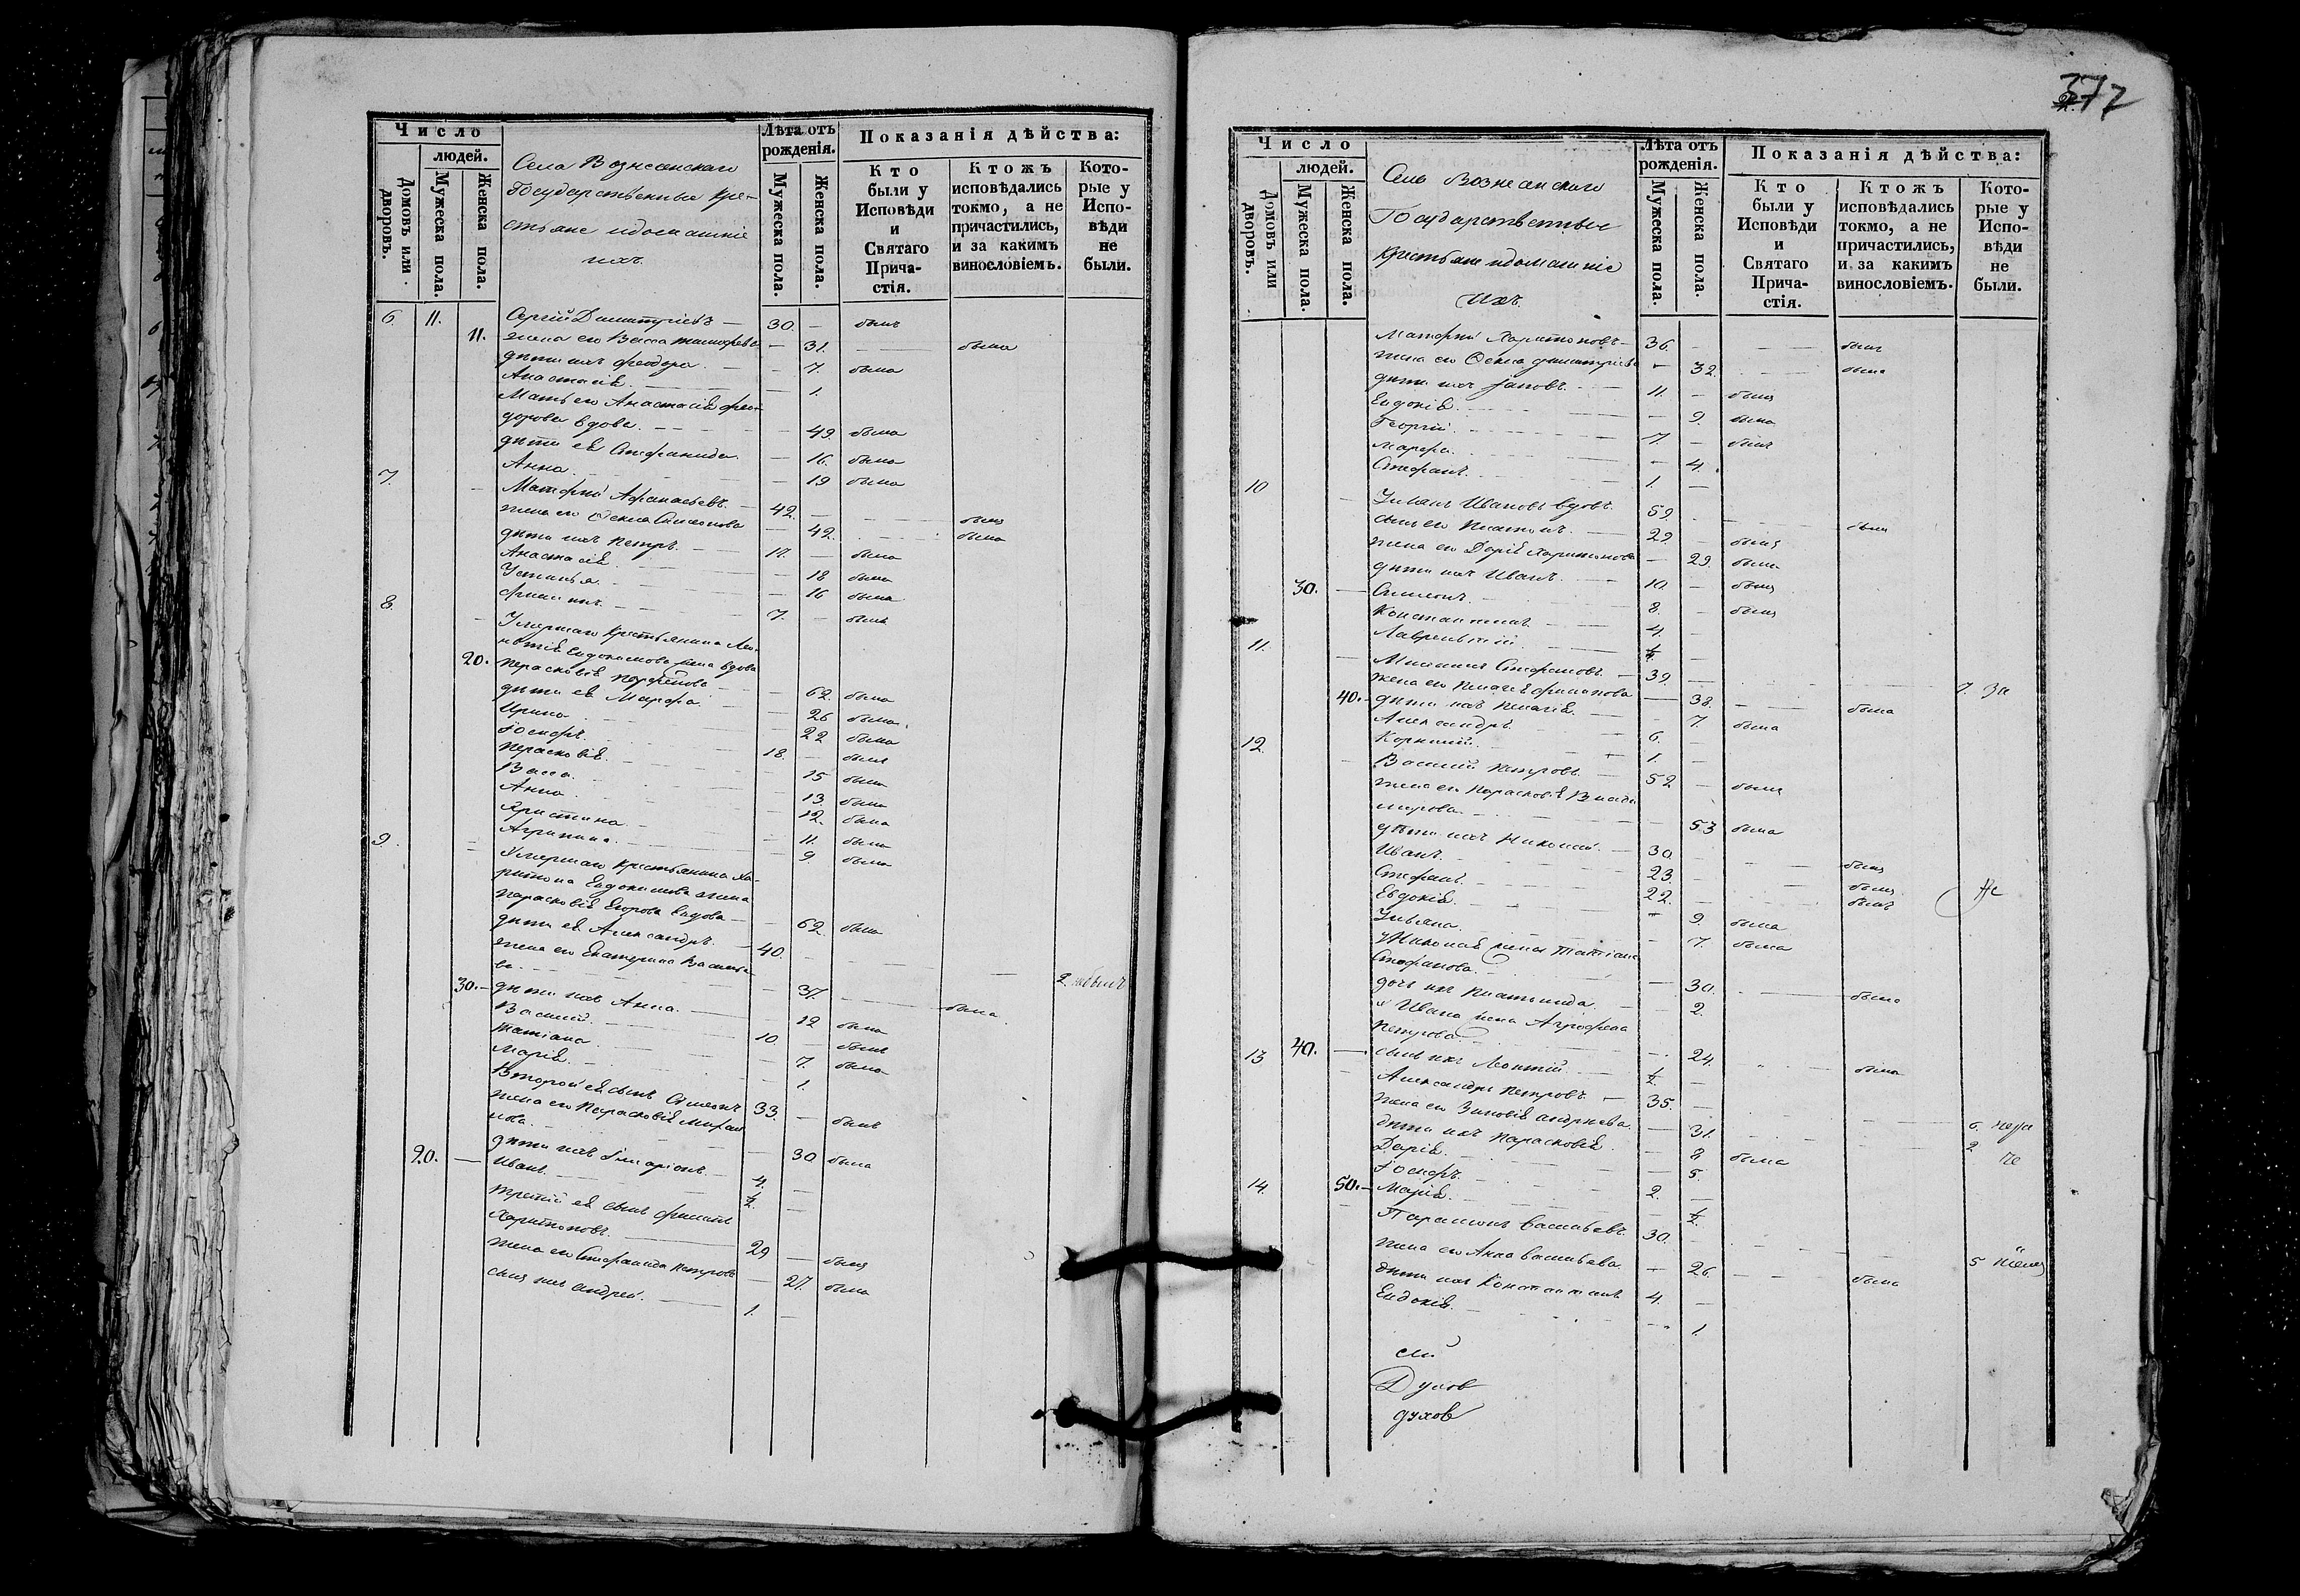 Число
людей.
Домовъ или дворовъ.
Мужеска пола.
Женска пола.
Села Вознесенскаго
Государственные кре-
стьяне идомашніе
ихъ.
Лѣта отъ рожденія.
Мужеска пола.
Женска пола.
Показанія дѣйства:
Кто были у Исповѣди и Святаго Причастія.
Ктожъ исповѣдались токмо, а не причастились, и за какимъ винословіемъ.
Которые у Исповѣди не были.
6. 11. Сергій Димитріевъ — 30. — былъ
11. жена его Васса — 31. — была
дѣти ихъ Феодора — 7. была
Анастасія — 1.
Мать его Анастасія Фео-
дорова вдова — 49. была
дѣти ея Стефанида — 16. была
Анна — 19 была
7. Матфій Афанасьевъ — 42. — былъ
жена его Ѳекла Симеонова — 42. была
дѣти ихъ Петръ — — была
Анастасія — 18 была
Устинья — 16 была
Филиппъ — 7. — былъ
8. Умершаго крестьянина Ле-
онтія Евдокимова жена вдова
20. Парасковія — 62. была
дѣти ея Марфа — 26 была
Ирина — 22 была
Іосифъ — 18. — былъ
Парасковія — 15 была
Васса — 13. была
Анна — 12. была
Христина — 11. была
Агрипина — 9. была
9. Умершаго крестьянина Ха-
ритона Евдокимова жена
Парасковія Егорова вдова — 62. была
дѣти ея Александръ — 40.
жена его Екатерина Василье-
ва — 37. — была
2.
30. дѣти ихъ Анна — 12 была
Василій — 10. — былъ
Татіана — 7. была
Марія — 1.
Второй ея сынъ Симеонъ 33. — былъ
жена его Парасковія
— 30 была
дѣти ихъ Иларіонъ — 4. —
20. Иванъ — ½ —
третій ея сынъ Филиппъ
Харитоновъ — 29 — былъ
жена его Стефанида Петрова — 27. была
сынъ ихъ Андрей — 1. —
372
Число
людей.
Домовъ или дворовъ.
Мужеска пола.
Женска пола.
Села Вознесенскаго
Государственные
Крестьяне идомашніе
ихъ.
Лѣта отъ рожденія.
Мужеска пола.
Женска пола.
Показанія дѣйства:
Кто были у Исповѣди и Святаго Причастія.
Ктожъ исповѣдались токмо, а не причастились, и за какимъ винословіемъ.
Которые у Исповѣди не были.
Матфій Харитоновъ — 36. — былъ
жена его Ѳекла Димитріева — 32. — была
дѣти ихъ Іаковъ — 11. — былъ
Евдокія — 9. была
Георгій — 7. — былъ
Марфа — 4.
Стефанъ — 1. —
10 Уліанъ Ивановъ вдовъ. 59. — былъ
сынъ его Платонъ — 29. — былъ
жена его Дарія Харитонова — 29. была
дѣти ихъ Иванъ — 10. — былъ
30. Симеонъ — 8. — былъ
Константинъ — 4. —
Лаврентій — —
11. Стефановъ — 39. —
жена его Пелагія Филипова — 38. — была
40. дѣти ихъ Пелагія — 7. была
Александръ — 6. —
Корнилій — 1. —
12. Василій Петровъ — 52 — былъ
жена его Парасковія Влади-
мирова — 53 была
дѣти ихъ Николай — 30. — былъ
Иванъ — 23. — былъ
Стефанъ — 22. — былъ
Евдокія — 9. была
Ульяна — 7. была
У Николая жена Татіана
Стефанова — 30. — была
дочь ихъ — 2.
у Ивана жена Агрофена
Петрова — 24. — была
40. сынъ ихъ Леонтій — ½ —
13 Александръ Петровъ — 35. —
жена его Зиновія Андреева — 31. —
дѣти ихъ Парасковія — 8 была
Дарія — 5.
Іосифъ — 2. —
50. Марія — ½
14. Парамонъ Васильевъ 30. —
жена его Анна Васильева — 26. — была
дѣти ихъ Константинъ 4. —
Евдокія — 1.
Духов
духов